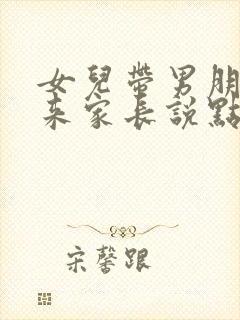 女兒帶男朋
來家長說點
宋馨跟